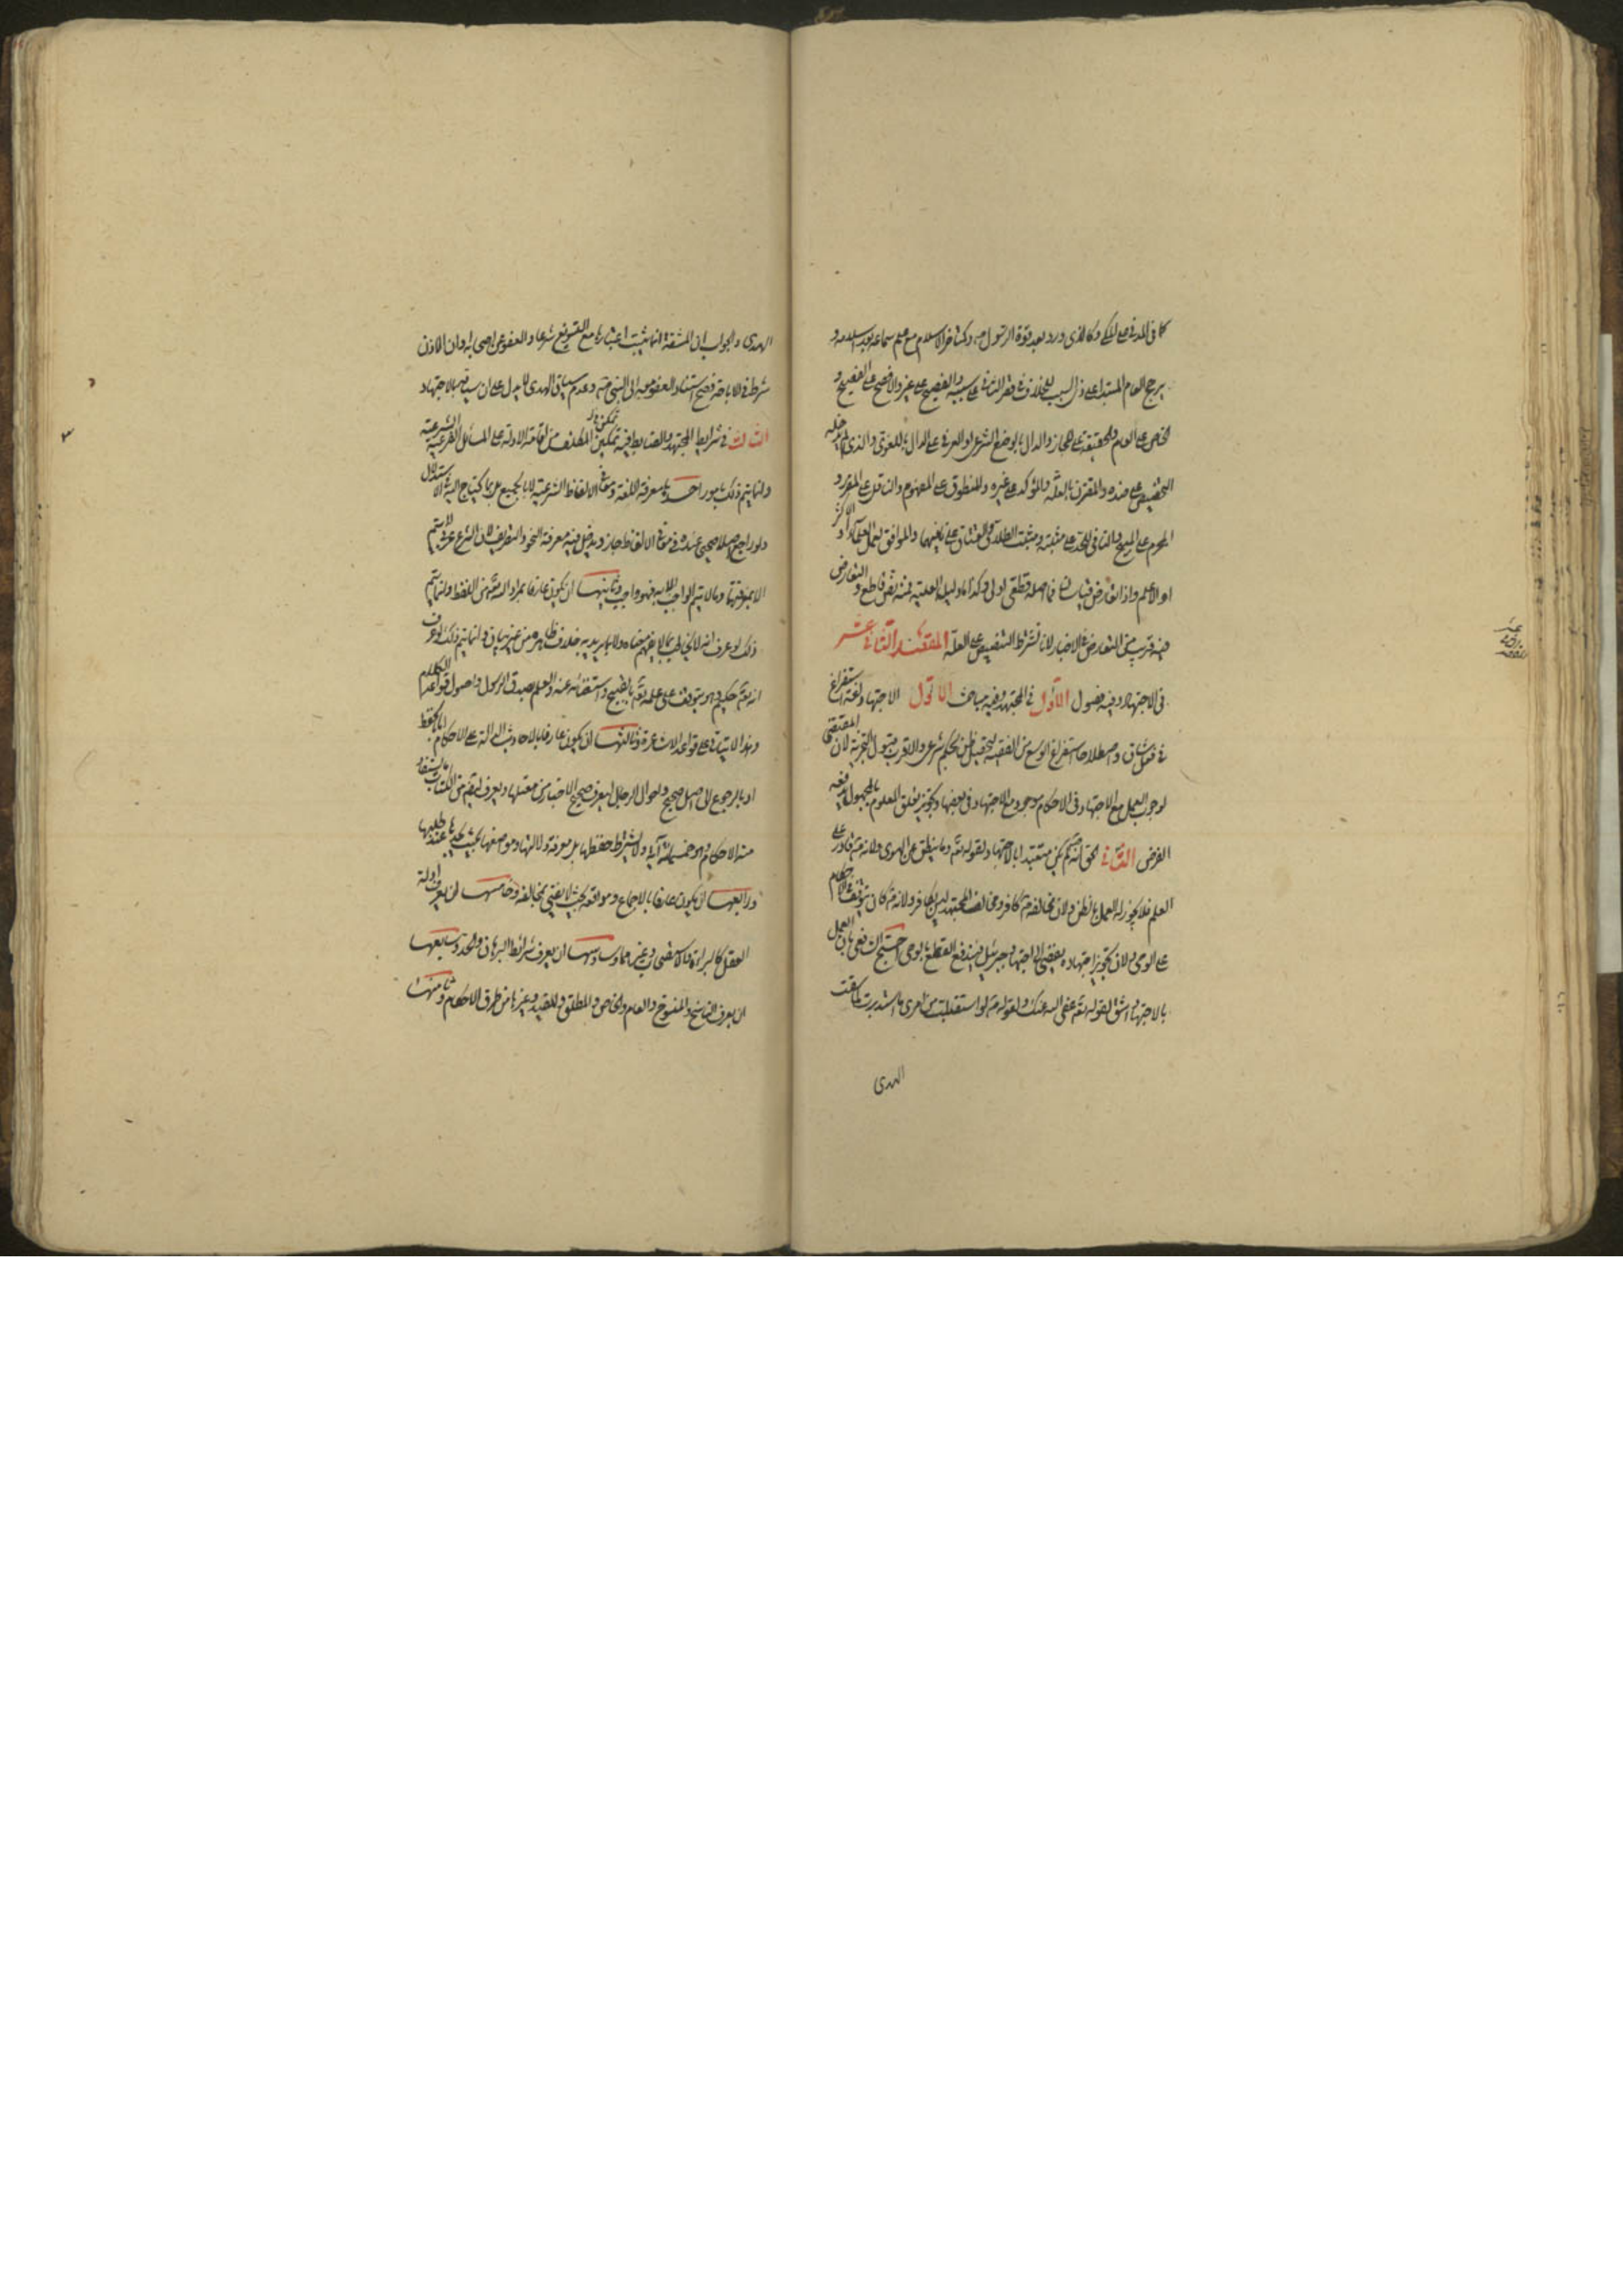 كما في المدني على المكي وكالذي ورد بعد قوة الرسول ص وكمتأخر الاسلام مع علم سماعه بعد اسلامه و
يرجح العام المبتدا على ذي السبب للخلاف في قصر الثاني على سببه والفصيح على غيره والافصح على الفصيح و
الخاص على العام والحقيقة على المجاز والدال بالوضع الشرعي او العرفي على الدال باللغوي والذي لم يدخله
التخصيص على ضده والمقترن بالعلة والمؤكد على غيره والمنطوق على المفهوم والناقل على المقرر و
المحرم على المبيح والنافي للحد على مثبته ومثبت الطلاق والعتاق على نافيهما والموافق لعمل العلماء او الاكثر
او الاعلم واذا تعارض قياسان فما اصله قطعي اولى وكذا ما دليل العلية فيه نص قاطع و التعارض
فيه قريب من التعارض في الاخبار لانا نشترط التنصيص على العلة المقصد الثاني عشر
في الاجتهاد وفيه فصول الاول في المجتهد وفيه مباحث الاول الاجتهاد لغة استفراغ
في فعل شاق واصطلاحا استفراغ الوسع من الفقيه لتحصيل ظن بحكم شرعي والاقرب قبول التجزية لان المقتضي
لوجوب العمل مع الاجتهاد في الاحكام موجود مع الاجتهاد في بعضها وتجويز تعلق المعلوم بالمجهول يدفعه
الفرض الثاني الحق انه ص لم يكن متعبدا بالاجتهاد لقوله تعالى وما ينطق عن الهوى ولانه ص قادر على
العلم فلا يجوز له العمل بالظن ولان مخالفه ص كافر ومخالف المجتهد ليس بكافر ولانه ص كان يتوقف في الاحكام
على الوحي ولان تجويز اجتهاده يفضي الى اجتهاد جبرئيل فيندفع القطع بالوحي احتج الشافعي بان العمل
بالاجتهاد اشق لقوله تعالى عفى الله عنك ولقوله ص لو استقبلت من امري ما استدبرت لما سقت
الهدى
الهدى والجواب ان المشقة انما يثبت اعتبارها مع التسويغ شرعا والعفو عن اصحابه وان الاذن
شرط في الاباحة فصح استناد العفو منه الى النبي ص وعدم سياق الهدى لا يدل على ان سياقه بالاجتهاد
الثالث في شرايط المجتهد والضابط فيه تمكن المكلف من اقامة الادلة على المسائل الشرعية الفرعية
وانما يتم ذلك بامور احدها معرفة اللغة ومعاني الالفاظ الشرعية لا بالجميع بل بما يحتاج اليه في الاستدلال
ولو راجع اصلا صحيحا عنده في معاني الالفاظ جاز ويدخل فيه معرفة النحو والتصريف لان الشرع عربي لا يتم
الا بمعرفتهما وما لا يتم الواجب الا به فهو واجب وثانيها ان يكون عارفا بمراد الله تعالى من اللفظ وانما يتم
ذلك لو عرف انه لا يخاطب بما لا يفهم معناه ولا بما يريد به خلاف ظاهره من غير بيان وانما يتم ذلك لو عرف
انه تعالى حكيم وهو يتوقف على علمه تعالى بالقبيح واستغنائه عنه والعلم بصدق الرسول واصول قواعد الكلام
وهذا لا يتاتى على قواعد الاشاعرة وثالثها ان يكون عارفا بالاحاديث الدالة على الاحكام اما بالحفظ
او بالرجوع الى اصل صحيح واحوال الرجال ليعرف صحيح الاخبار من معتلها ويعرف ايضا من الكتاب ما يستفاد
منه الاحكام وهو خمسمائة آية ولا يشترط حفظها بل معرفة دلالتها ومواضعها بحيث يجدها عند طلبها
ورابعها ان يكون عارفا بالاجماع ومواقعه بحيث لا يفتي بمخالفه وخامسها ان يعرف ادلة
العقل كالبراءة والاستصحاب وغيرهما وسادسها ان يعرف شرائط البرهان والحد وسابعها
ان يعرف الناسخ والمنسوخ والعام والخاص والمطلق والمقيد وغيرها من طرق الاحكام وثامنها